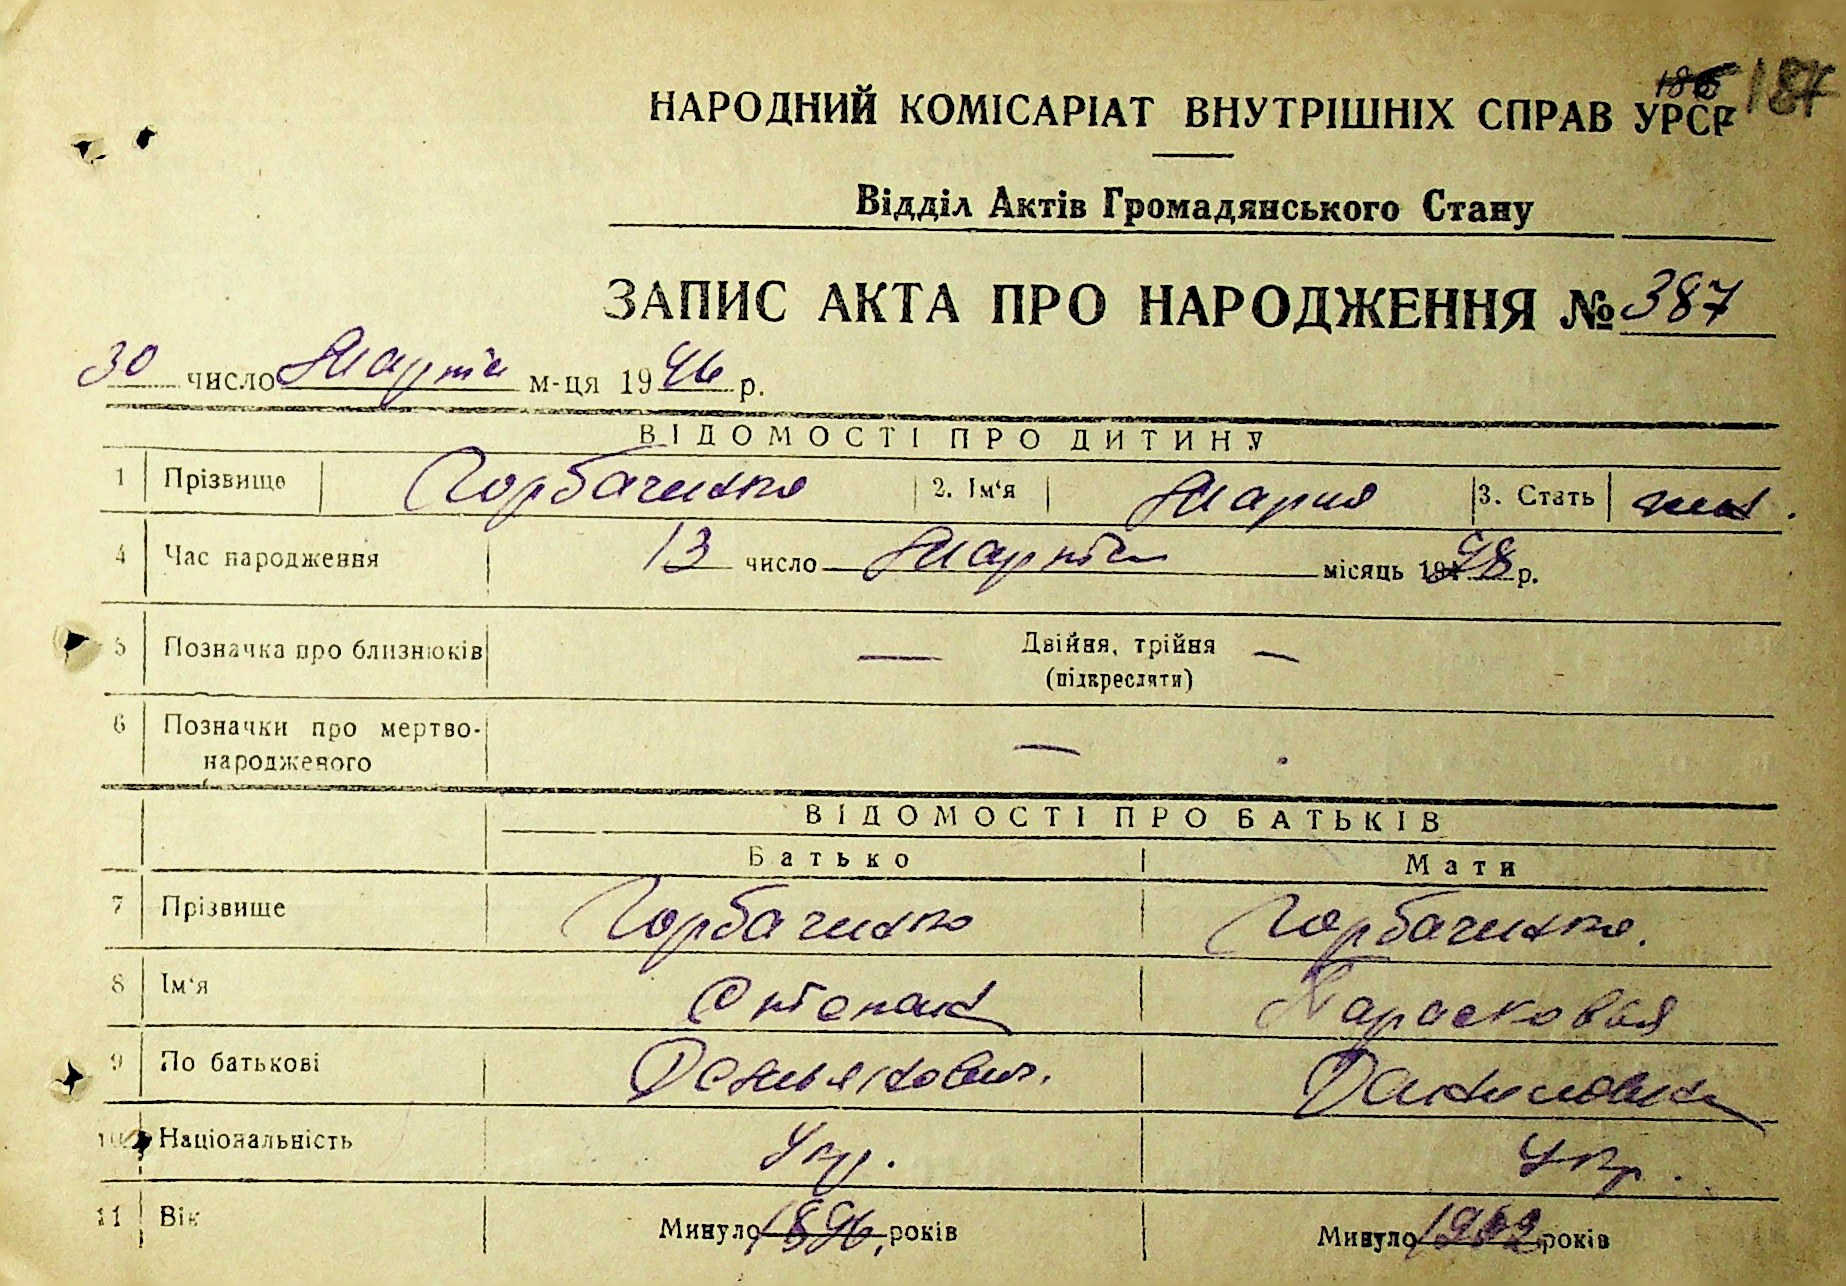 187
НАРОДНИЙ КОМІСАРІАТ ВНУТРІШНІХ СПРАВ УРСР
Відділ Актів Громадянського Стану
ЗАПИС АКТА ПРО НАРОДЖЕННЯ № 387
30 число Марта м-ця 1946 р.
ВІДОМОСТІ ПРО ДИТИНУ
1 Прізвище Горбаченко 2. Ім'я Мария 3. Стать жен.
4 Час народження 13 число Марта місяць 1928 р.
5 Позначка про близнюків — Двійня, трійня —
(підкресляти)
6 Позначки про мертво-
народженого —
ВІДОМОСТІ ПРО БАТЬКІВ
Батько Мати
7 Прізвище Горбаченко Горбаченко.
8 Ім'я Степан Парасковья
9 По батькові Демьянович. Даниловна
10 Національність Укр. Укр.
11 Вік Минуло 1896 років Минуло 1902 років